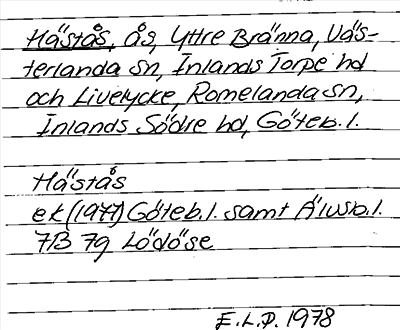 Hästås, ås, Yttre Bränna, Väs-
terlanda sn, Inlands Torpe hd
och Livelycke, Romelanda sn,
Inlands Södre hd, Göteb. l.
Hästås
ek (1977) Göteb. l. samt Älvsb. l.
7B 7g Lödöse
E.L.P. 1978